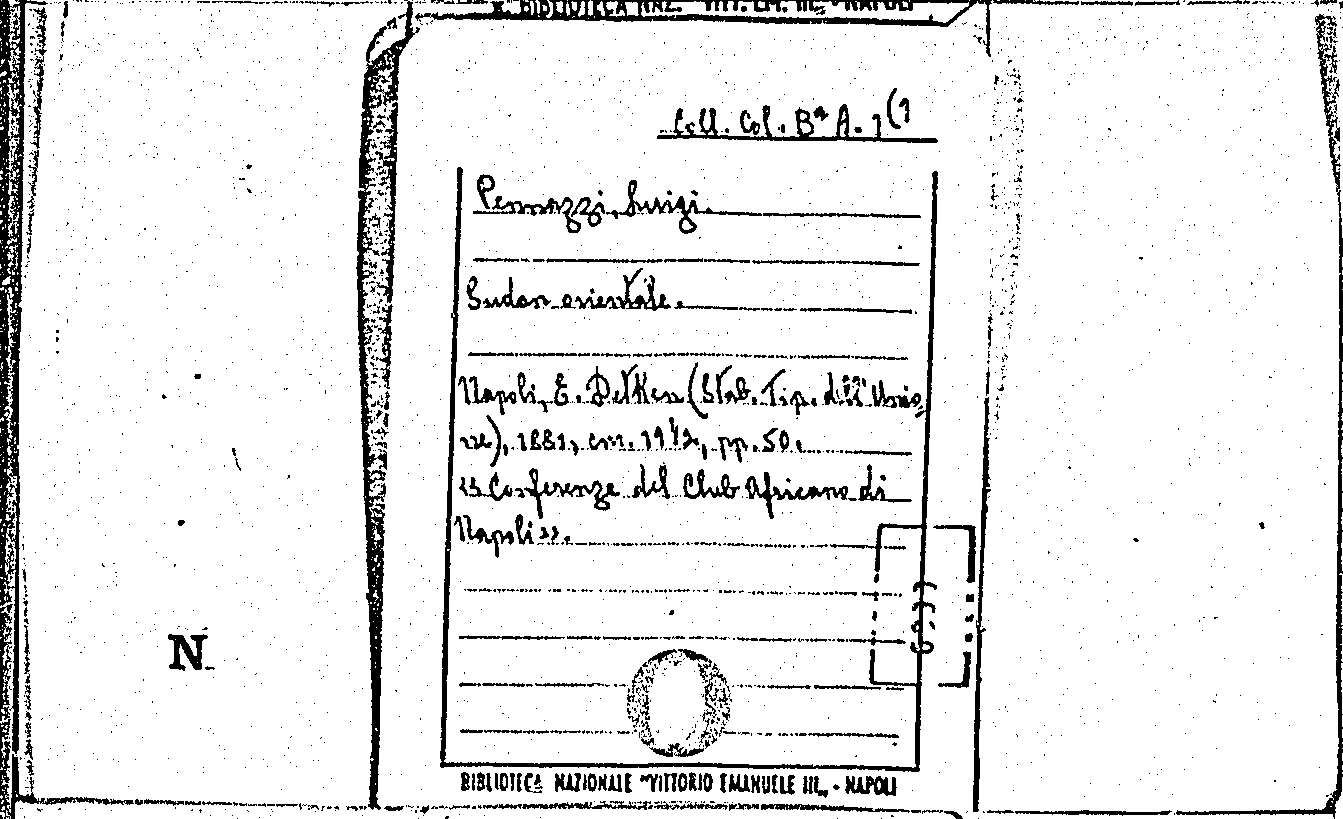 BIBLIOTECA NAZ. "VITT. EM. III„ - NAPOLI
Coll. Col. Bª A. 1(1
Pennazzi, Luigi.
Sudan orientale.
Napoli, E. Detken (Stab. Tip. dell'Unio
ne), 1881, cm. 19½, pp. 50.
«Conferenze del Club Africano di
Napoli».
N
BIBLIOTECA NAZIONALE "VITTORIO EMANUELE III„ - NAPOLI